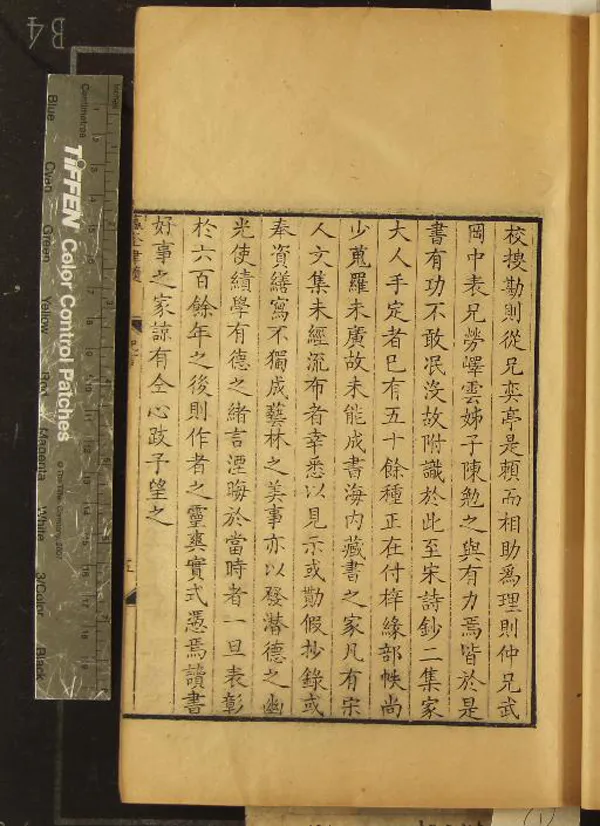 校搜勘則從兄奕亭是賴而相助為理則仲兄武
岡中表兄勞嶧雲姊子陳勉之與有力焉皆於是
書有功不敢泯沒故附識於此至宋詩鈔二集家
大人手定者已有五十餘種正在付梓緣部帙尚
少蒐羅未廣故未能成書海內藏書之家凡有宋
人文集未經流布者幸悉以見示或勘假抄錄或
奉資繕寫不獨成藝林之美事亦以發潛德之幽
光使績學有德之緒言湮晦於當時者一旦表彰
於六百餘年之後則作者之靈爽實式憑焉讀書
好事之家諒有仝心跂予望之
五
B4
TIFFEN Color Control Patches
© The Tiffen Company, 2007
Centimetres
Blue
Cyan
Green
Yellow
Red
Magenta
White
3/Color
Black